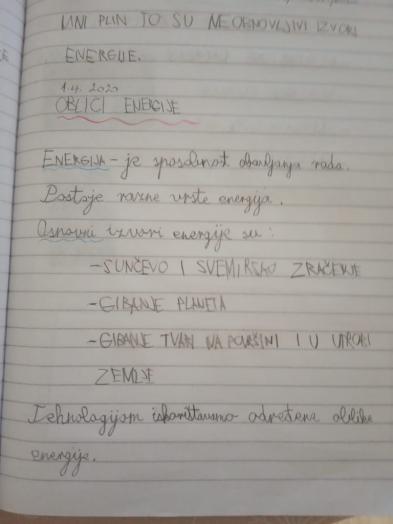 MNI PLIN TO SU NEOBNOVLJIVI IZVORI
ENERGIJE.
1.4. 2020
OBLICI ENERGIJE
ENERGIJA - je sposobnost obavljanja rada.
Postoje razne vrste energija.
Osnovni izvori energije su:
- SUNČEVO I SVEMIRSKO ZRAČENJE
- GIBANJE PLANETA
- GIBANJE TVARI NA POVRŠINI I U UTROBI
ZEMLJE
Tehnologijom iskorištavamo određene oblike
energije.